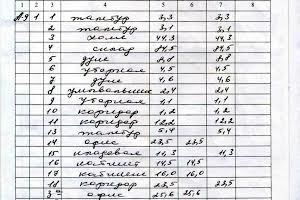 1 2 3 4 5 6 7 8
А9 1 1 тамбур 3,3 3,3
2 тамбур 3,1 3,1
3 холл 44,3 44,3
4 склад 84,5 84,5
5 душ 8,8 8,8
6 уборная 4,5 4,5
7 душ 4,6 4,6
8 умывальник 2,4 2,4
9 уборная 1,1 1,1
10 коридор 1,2 1,2
11 коридор 12,2 12,2
13 тамбур 5,4 5,4
14 офис 23,5 23,5
15 душевая 11,3 11,3
16 кабинет 14,5 14,5
17 кабинет 16,0 16,0
18 коридор 23,5 23,5
офис 25,6 25,6